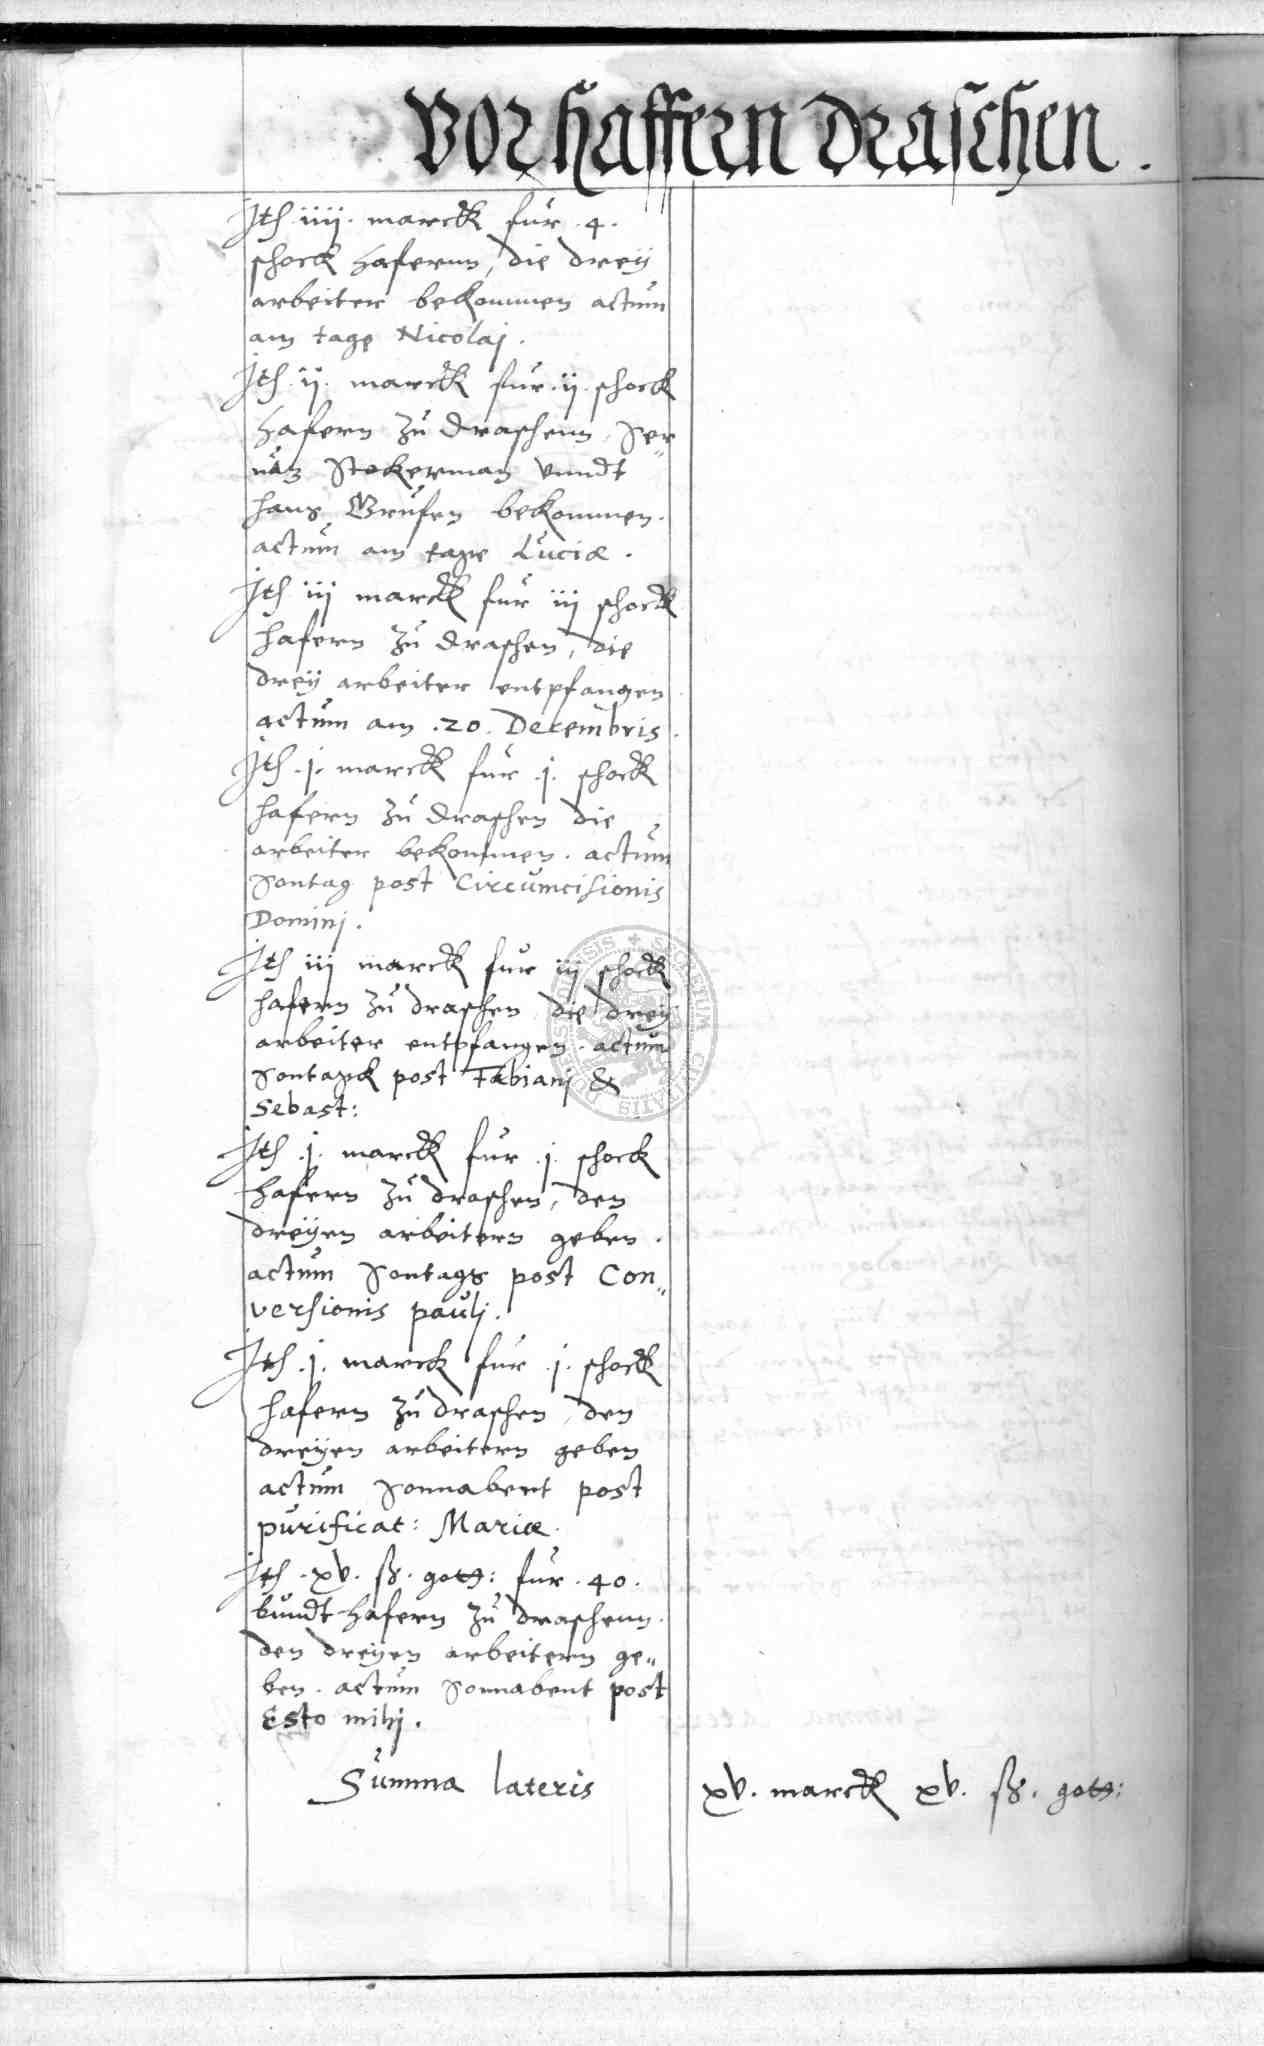 Vor Haffern Draschen.
Ith iiij. marckk fur .4.
schock hafernn, die dreÿ
arbeiter bekommen actum
am tage Nicolaj.
Ith .ij. marckk fur .ij. schock
hafern zu draschenn, Ser„
uaz Stokerman vnndt
hans bekommen.
actum am tage Luciæ.
Ith iij marckk fur iij schockk
hafern zu draschen, die
dreÿ arbeiter entpfangen
actum am .20. Decembris.
Ith .j. marckk fur .j. schockk
hafern zu draschen die
arbeiter bekommen. actum
Sontag post Circumcisionis
Dominj.
Ith iij marckk fur iij schockk
hafern zu draschen die dreÿ
arbeiter entpfangen. actum
Sontagk post Fabianj &
Sebast:
Ith .j. marckk fur .j. schock
hafern zu draschen, den
dreÿen arbeitern geben.
actum Sontags post Con„
versionis paulj.
Ith .j. marck fur .j. schockk
hafern zu draschen, den
dreÿen arbeitern geben
actum Sonnabent post
purificat: Mariæ.
Ith .xv. ß. gott: fur .40.
bundt hafern zu draschenn.
den dreyen arbeitern ge„
ben. actum Sonnabent post
Esto mihj.
Summa lateris xv. marckk xv. ß. gott: